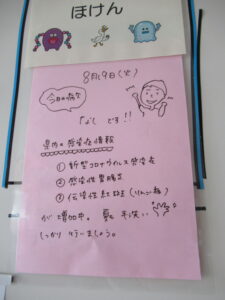 ほけん
8月9日(火)
今日の病欠
「なし です!!
県内の感染症情報
① 新型コロナウイルス感染症
② 感染性胃腸炎
③ 伝染性紅斑(りんご病)
が 増加中。 手洗い
しっかり 行いましょう。